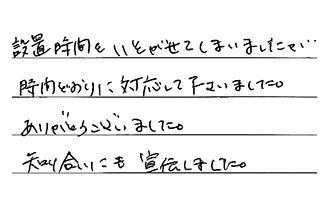 設置時間をいそがせてしまいましたが…
時間どおりに対応して下さいました。
ありがとうございました。
知り合いにも宣伝しました。